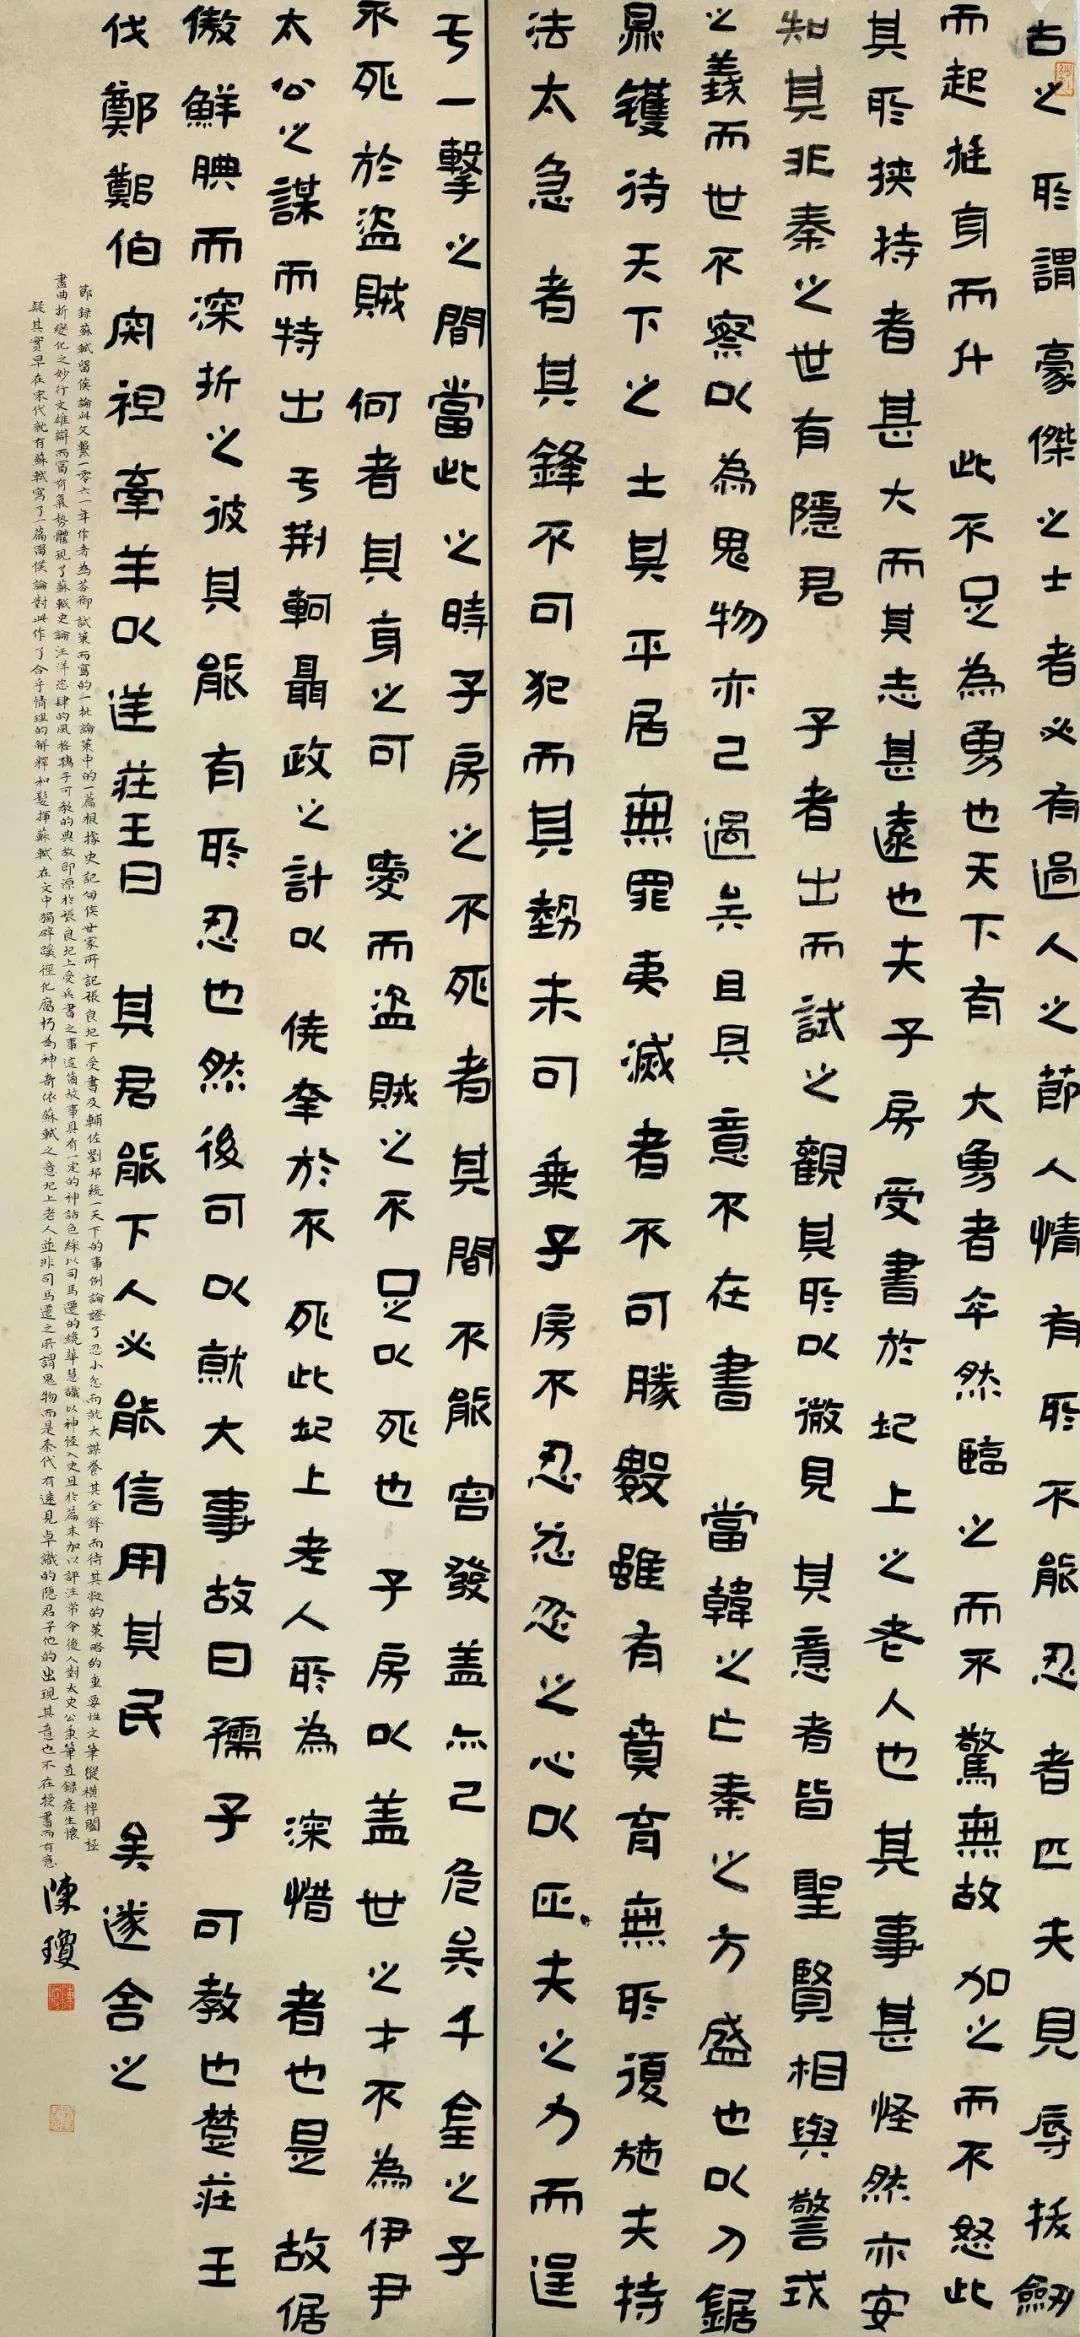 古之所謂豪傑之士者必有過人之節人情有所不能忍者匹夫見辱拔劒
而起挺身而鬥此不足為勇也天下有大勇者卒然臨之而不驚無故加之而不怒此
其所挾持者甚大而其志甚遠也夫子房受書於圯上之老人也其事甚怪然亦安
知其非秦之世有隱君子者出而試之觀其所以微見其意者皆聖賢相與警戒
之義而世不察以為鬼物亦已過矣且其意不在書當韓之亡秦之方盛也以刀鋸
鼎鑊待天下之士其平居無罪夷滅者不可勝數雖有賁育無所復施夫持
法太急者其鋒不可犯而其勢未可乘子房不忍忿忿之心以匹夫之力而逞
于一擊之間當此之時子房之不死者其間不能容發盖亦已危矣千金之子
不死於盜賊何者其身之可愛而盜賊之不足以死也子房以盖世之才不為伊尹
太公之謀而特出于荆軻聶政之計以僥幸於不死此圯上老人所為深惜者也是故倨
傲鮮腆而深折之彼其能有所忍也然後可以就大事故曰孺子可教也楚莊王
伐鄭鄭伯肉袒牽羊以逆莊王曰其君能下人必能信用其民矣遂舍之
節錄蘇軾留侯論此文繫一零六一年作者為答御試策而寫的一批論策中的一篇根據史記留侯世家所記張良圯下受書及輔佐劉邦統一天下的事例論證了忍小忿而就大謀養其全鋒而待其敝的策略的重要性文筆縱橫捭闔極
盡曲折變化之妙行文雄辯而富有氣勢體現了蘇軾史論汪洋恣肆的風格孺子可教的典故即源於張良圯上受兵書之事這箇故事具有一定的神話色綵以司馬遷的繞華慧識以神怪入史且於篇末加以評注常令後人對太史公秉筆直錄產生懷
疑其實早在宋代就有蘇軾寫了一篇留侯論對此作了合乎情理的解釋和髮揮蘇軾在文中獨辟蹊徑化腐朽為神奇依蘇軾之意圯上老人並非司馬遷之所謂鬼物而是秦代有遠見卓識的隱君子他的出現其意也不在授書而有意
陳瓊